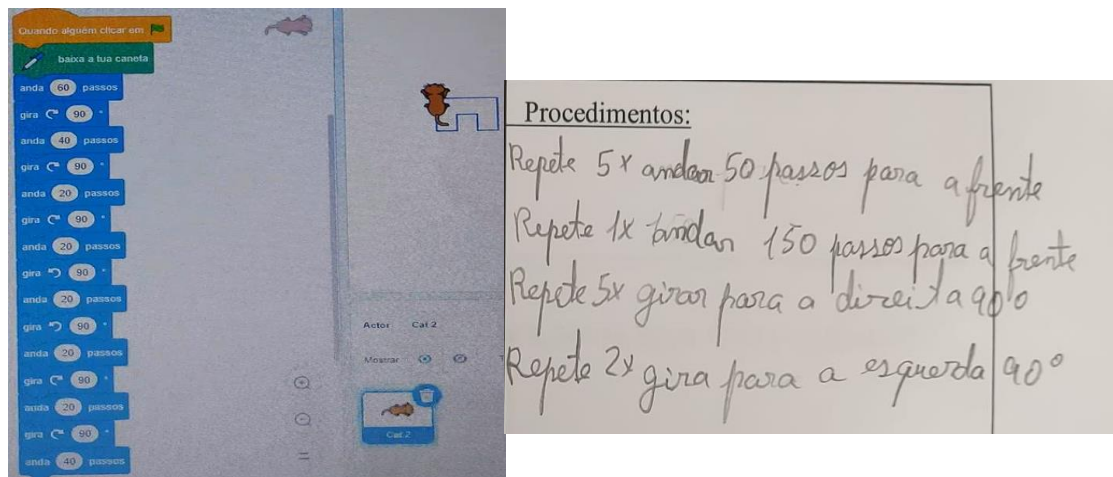 Quando alguém clicar em
baixa a tua caneta
anda 60 passos
gira 90 °
anda 40 passos
gira 90 °
anda 20 passos
gira 90 °
anda 20 passos
gira 90 °
anda 20 passos
gira 90 °
anda 20 passos
gira 90 °
anda 20 passos
gira 90 °
anda 40 passos
Actor Cat 2
Mostrar
Cat 2
Procedimentos:
Repete 5x andar 50 passos para a frente
Repete 1x andar 150 passos para a frente
Repete 5x girar para a direita 90º
Repete 2x gira para a esquerda 90º